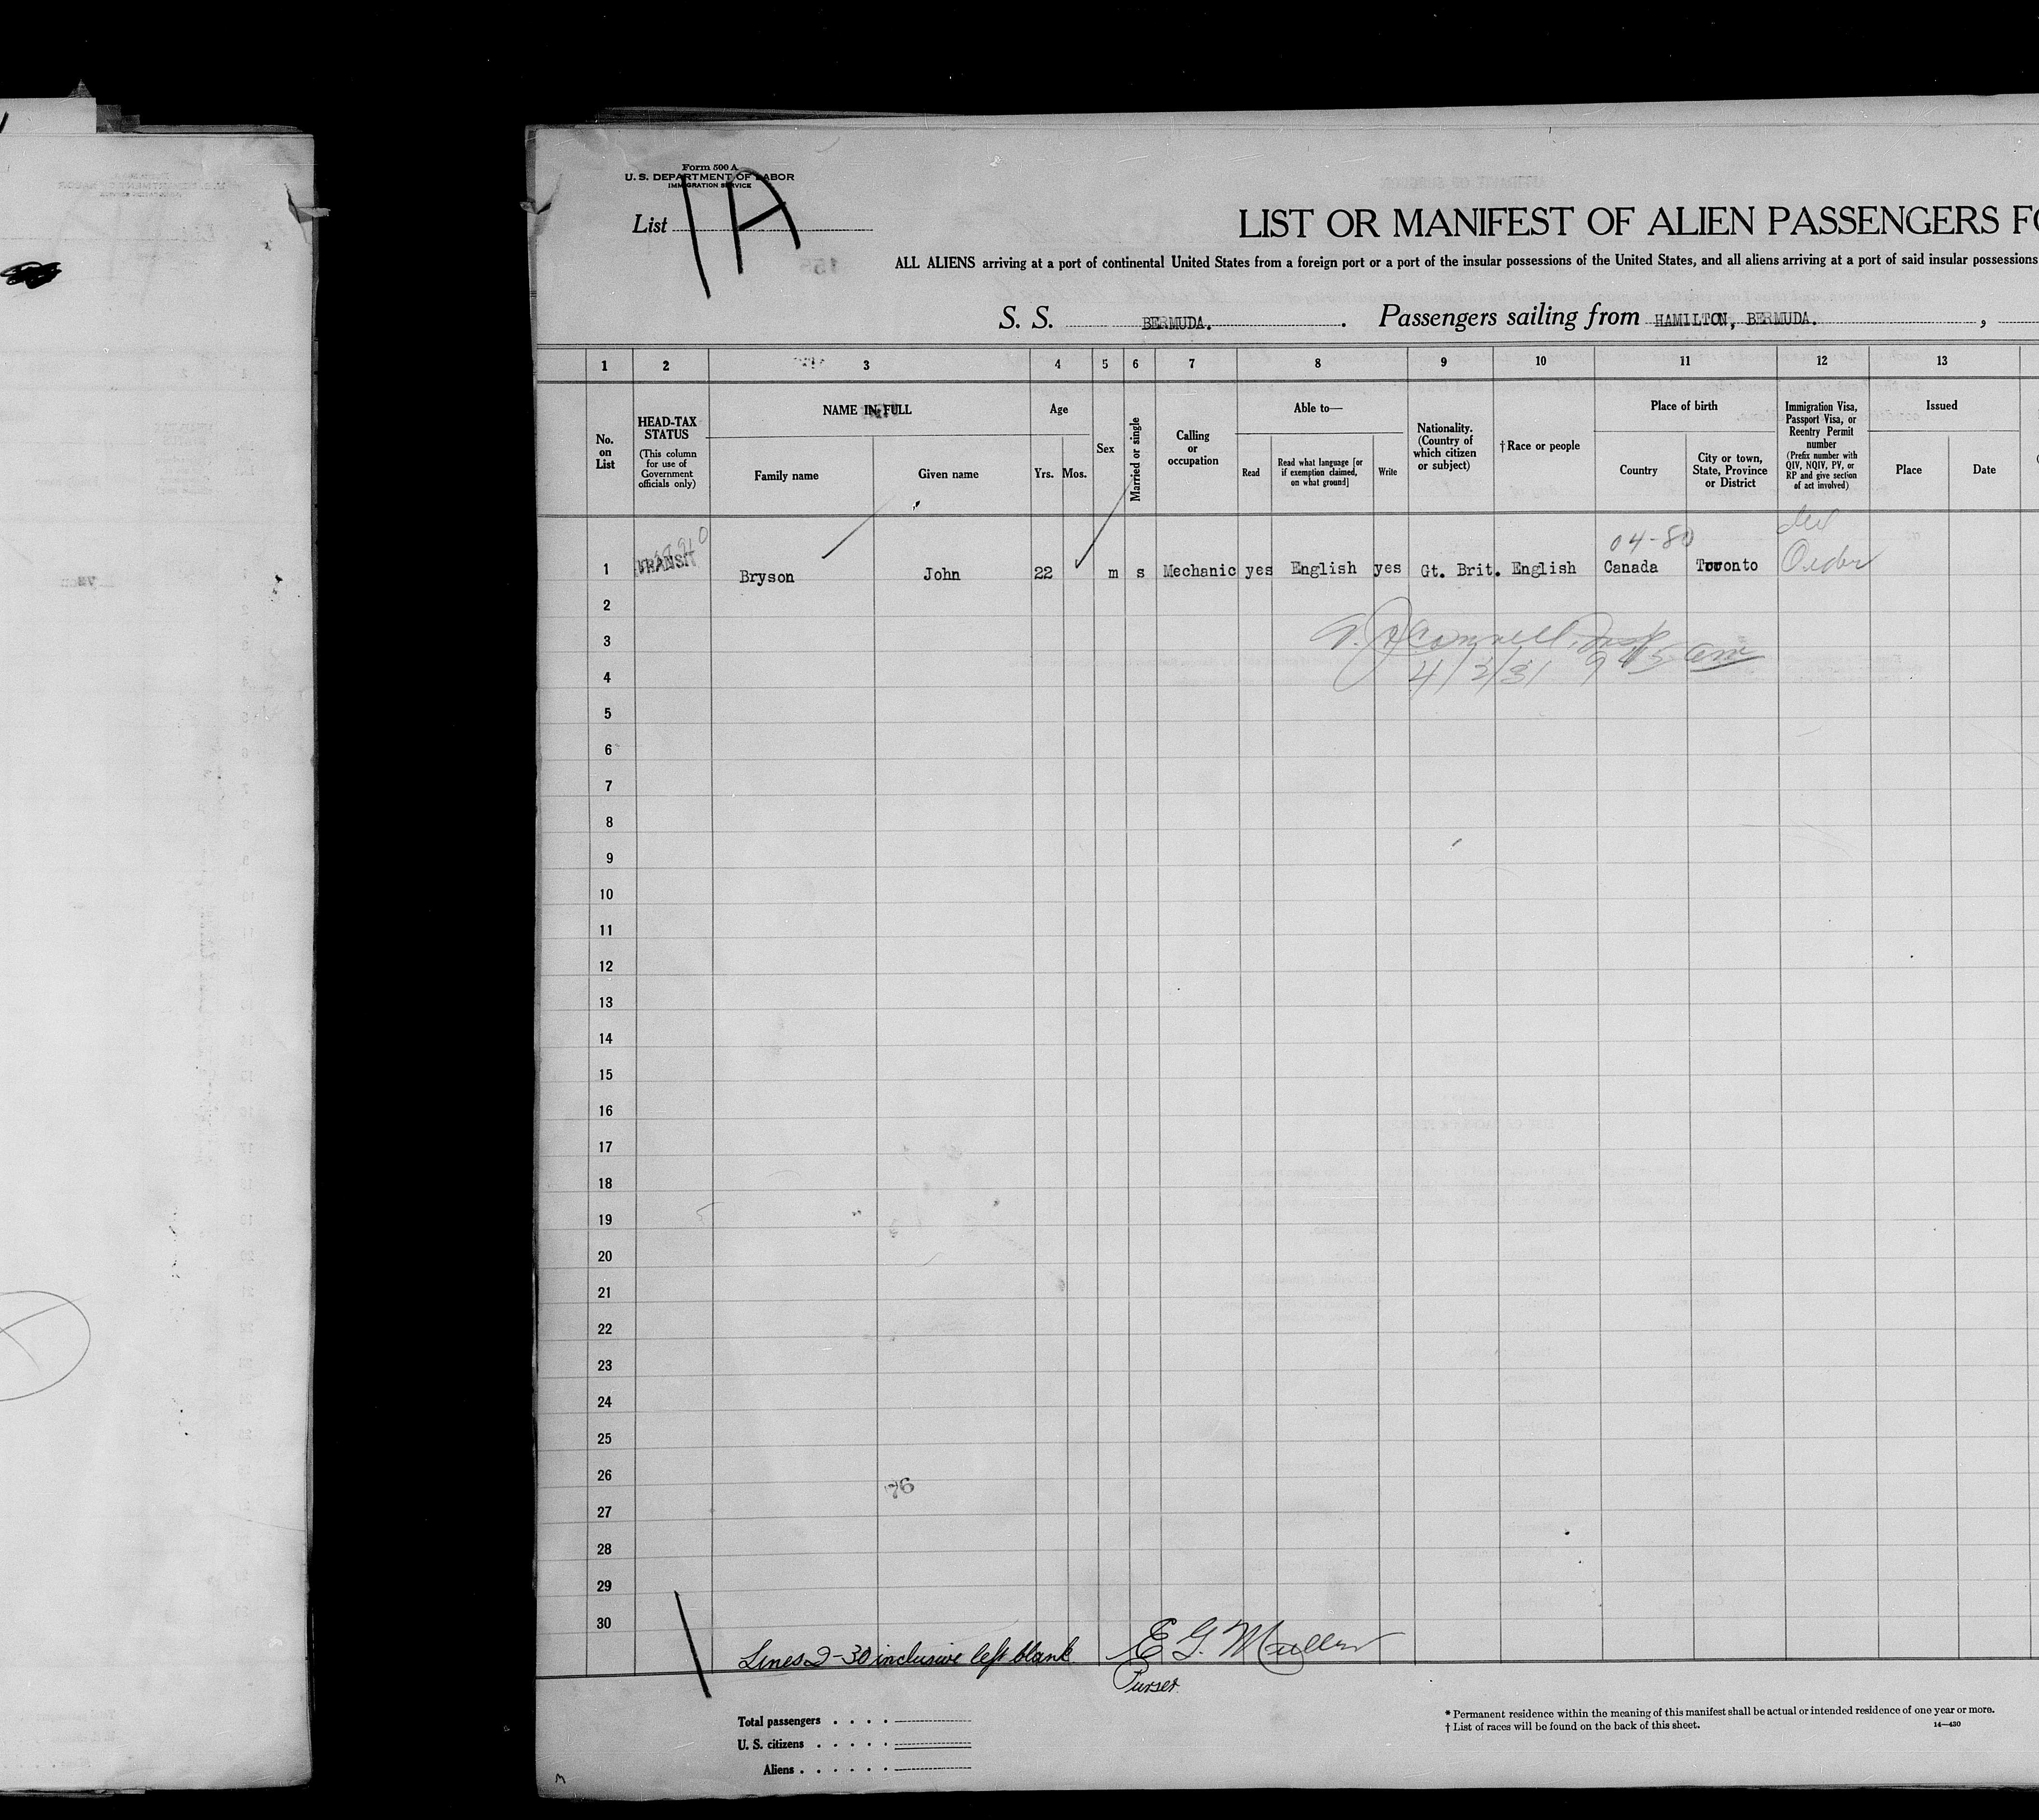 Form 500 A
U. S. DEPARTMENT OF LABOR
IMMIGRATION SERVICE
List 1A
LIST OR MANIFEST OF ALIEN PASSENGERS
ALL ALIENS arriving at a port of continental United States from a foreign port or a port of the insular possessions of the United States, and all aliens arriving at a port of said insular possessions
S. S. BERMUDA. Passengers sailing from HAMILTON, BERMUDA.,
1 2 3 4 5 6 7 8 9 10 11 12 13
No. on List
HEAD-TAX STATUS
(This column for use of Government officials only)
NAME IN FULL
Family name Given name
Age
Yrs. Mos.
Sex
Married or single
Calling or occupation
Able to—
Read
Read what language [or if exemption claimed, on what ground]
Write
Nationality. (Country of which citizen or subject)
†Race or people
Place of birth
Country
City or town, State, Province or District
Immigration Visa, Passport Visa, or Reentry Permit number
(Prefix number with QIV, NQIV, PV, or RP and give section of act involved)
Issued
Place Date
04-80
1 TRANSIT Bryson John 22 m s Mechanic yes English yes Gt. Brit. English Canada Toronto
2
3
4 4/3/31 9 45 am
5
6
7
8
9
10
11
12
13
14
15
16
17
18
19
20
21
22
23
24
25
26
76
27
28
29
30
Lines 2-30 inclusive left blank E G. Muller
Purser
Total passengers . . . .
U. S. citizens . . . . .
Aliens . . . . . .
* Permanent residence within the meaning of this manifest shall be actual or intended residence of one year or more.
† List of races will be found on the back of this sheet.
14—430